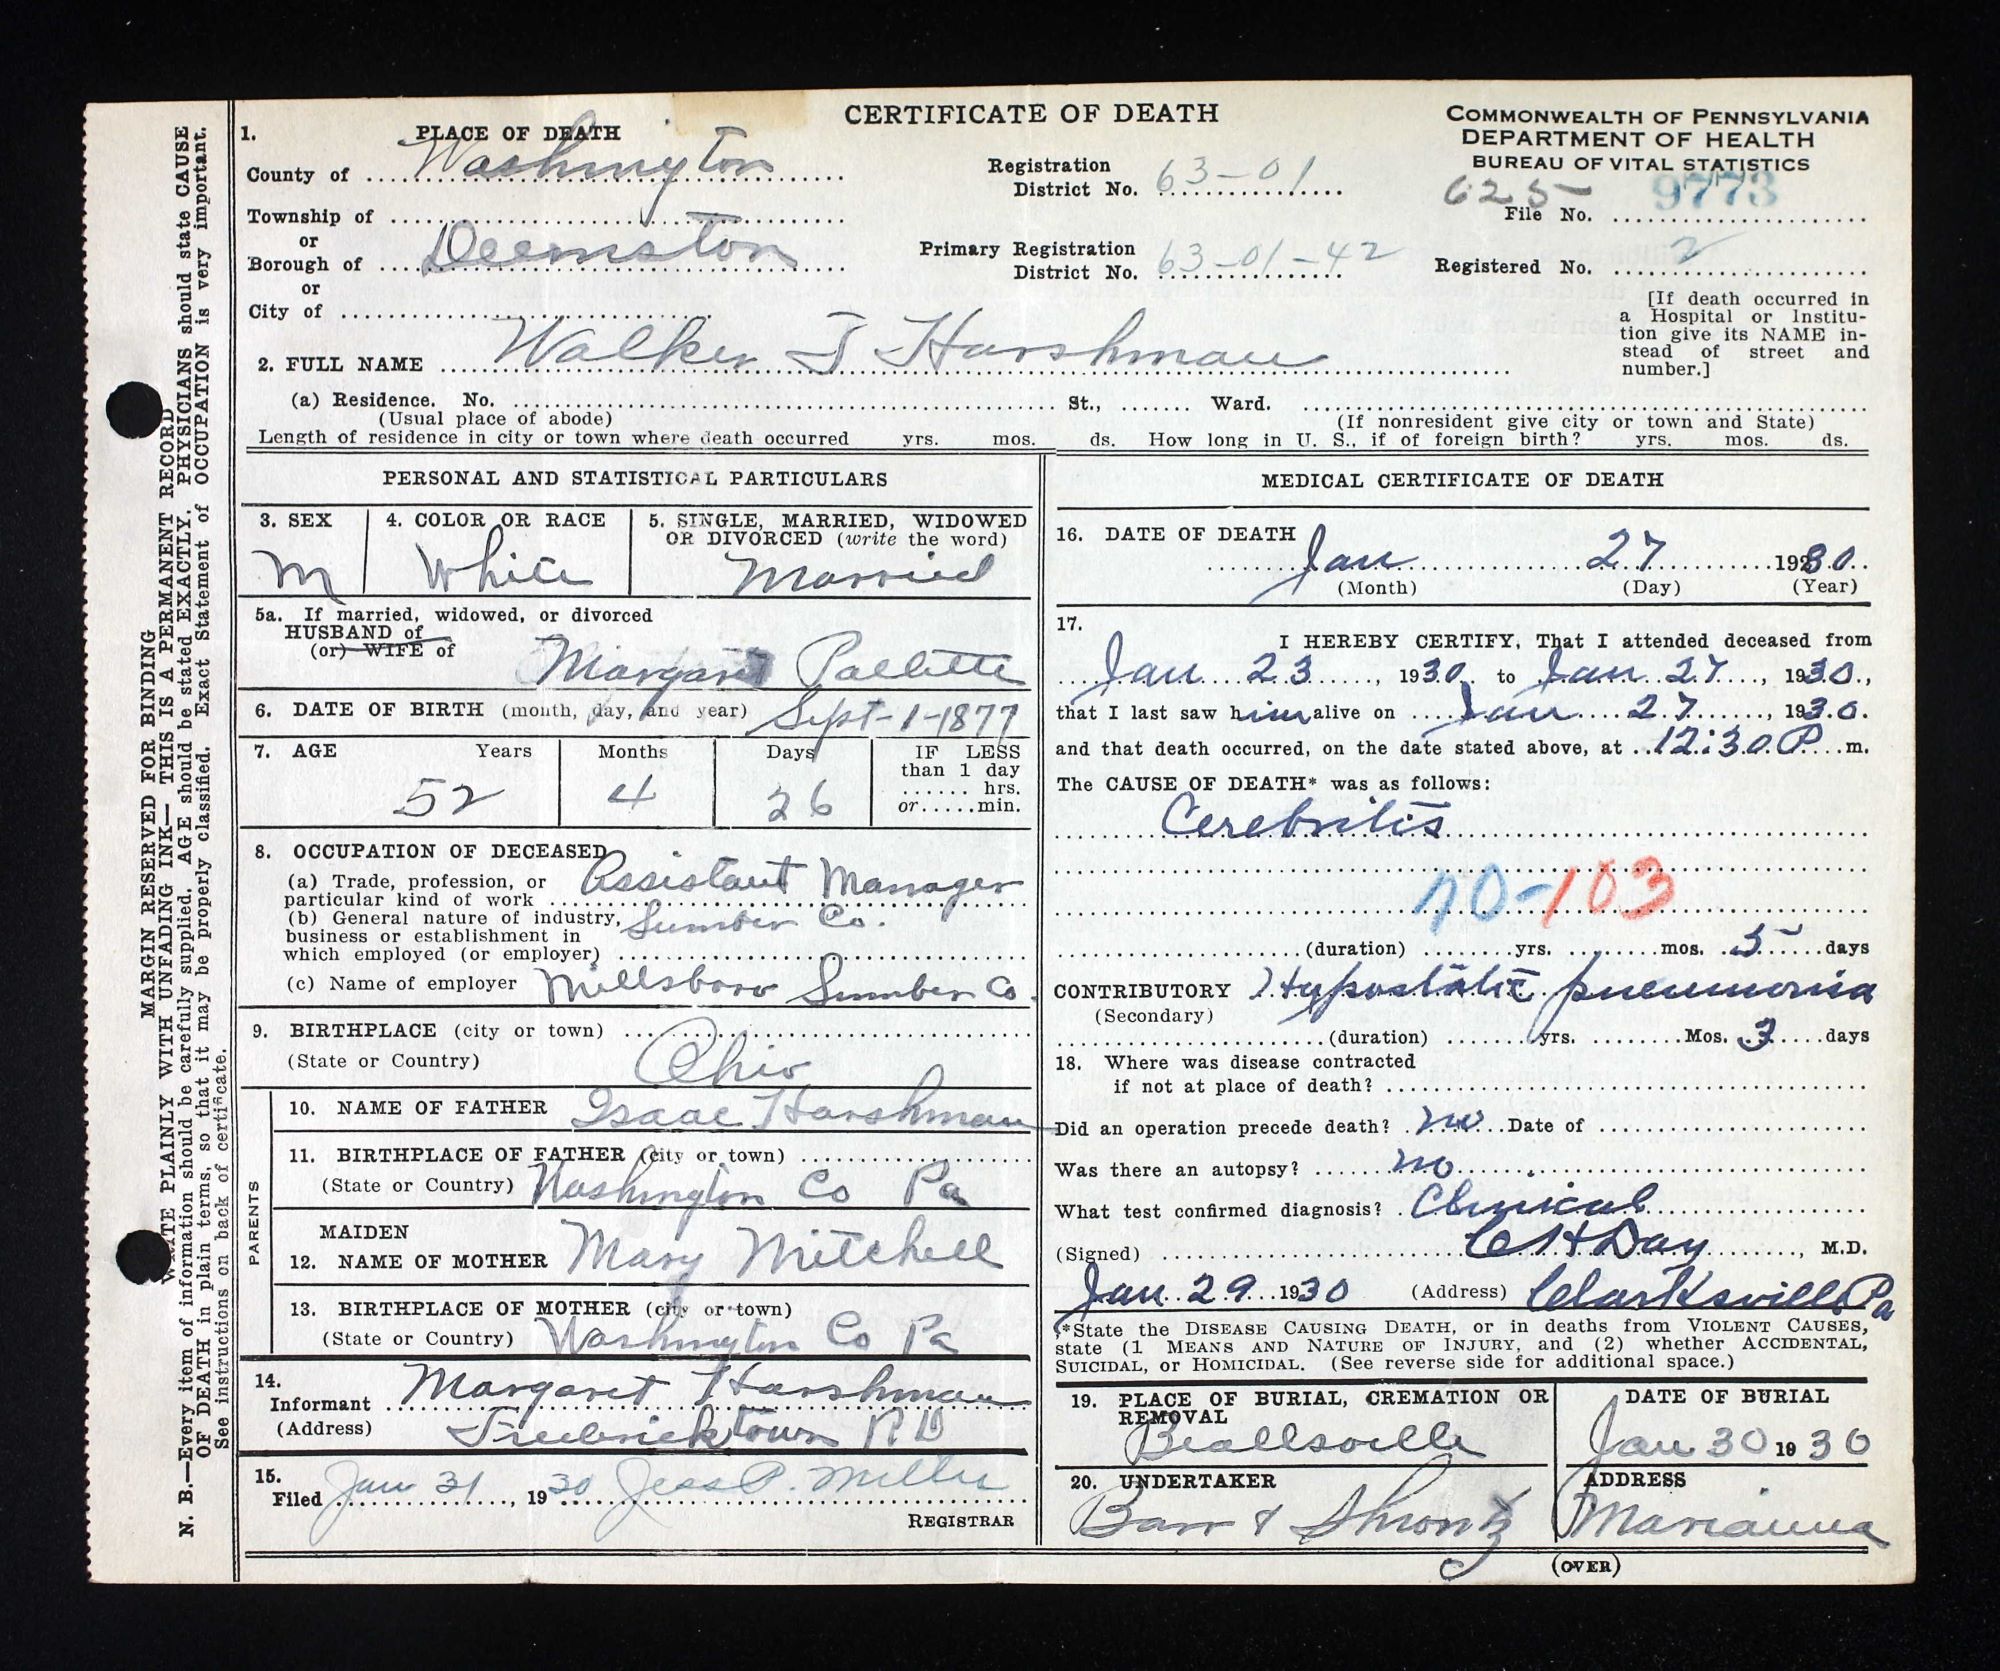 CERTIFICATE OF DEATH
COMMONWEALTH OF PENNSYLVANIA
DEPARTMENT OF HEALTH
BUREAU OF VITAL STATISTICS
1. PLACE OF DEATH
County of Washington
Township of
or
Borough of Deemston
or
City of
Registration
District No. 63-01
Primary Registration
District No. 63-01-42
625 9773
File No.
Registered No. 2
[If death occurred in
a Hospital or Institu-
tion give its NAME in-
stead of street and
number.]
2. FULL NAME Walker J Harshman
(a) Residence. No. St., Ward.
(Usual place of abode) (If nonresident give city or town and State)
Length of residence in city or town where death occurred yrs. mos. ds. How long in U. S., if of foreign birth? yrs. mos. ds.
PERSONAL AND STATISTICAL PARTICULARS
3. SEX 4. COLOR OR RACE 5. SINGLE, MARRIED, WIDOWED
OR DIVORCED (write the word)
M White Married
5a. If married, widowed, or divorced
HUSBAND of
(or) WIFE of Margaret
6. DATE OF BIRTH (month, day, and year) Sept-1-1877
7. AGE Years Months Days IF LESS
than 1 day
hrs.
or min.
52 4 26
8. OCCUPATION OF DECEASED
(a) Trade, profession, or
particular kind of work Assistant Manager
(b) General nature of industry,
business or establishment in
which employed (or employer) Lumber Co.
(c) Name of employer Millsboro Lumber Co.
9. BIRTHPLACE (city or town)
(State or Country) Ohio
PARENTS
10. NAME OF FATHER Isaac Harshman
11. BIRTHPLACE OF FATHER (city or town)
(State or Country) Washington Co Pa
MAIDEN
12. NAME OF MOTHER Mary Mitchell
13. BIRTHPLACE OF MOTHER (city or town)
(State or Country) Washington Co Pa
14.
Informant Margaret Harshman
(Address) Fredericktown RD
15.
Filed Jan 31, 1930 Jess P. Miller
REGISTRAR
MEDICAL CERTIFICATE OF DEATH
16. DATE OF DEATH
Jan 27 1930
(Month) (Day) (Year)
17.
I HEREBY CERTIFY, That I attended deceased from
Jan 23, 1930 to Jan 27, 1930,
that I last saw him alive on Jan 27, 1930.
and that death occurred, on the date stated above, at 12:30 P m.
The CAUSE OF DEATH* was as follows:
Cerebritis
70-103
(duration) yrs. mos. 5 days
CONTRIBUTORY Hypostatic pneumonia
(Secondary)
(duration) yrs. Mos. 3 days
18. Where was disease contracted
if not at place of death?
Did an operation precede death? no Date of
Was there an autopsy? no
What test confirmed diagnosis? Clinical
(Signed) C H Day, M.D.
Jan 29 1930 (Address) Clarksville Pa
*State the DISEASE CAUSING DEATH, or in deaths from VIOLENT CAUSES,
state (1 MEANS AND NATURE OF INJURY, and (2) whether ACCIDENTAL,
SUICIDAL, or HOMICIDAL. (See reverse side for additional space.)
19. PLACE OF BURIAL, CREMATION OR
REMOVAL
Beallsville
DATE OF BURIAL
Jan 30 1930
20. UNDERTAKER
Barr & Shrontz
ADDRESS
Marianna
(OVER)
MARGIN RESERVED FOR BINDING
WRITE PLAINLY WITH UNFADING INK—THIS IS A PERMANENT RECORD
N. B.—Every item of information should be carefully supplied. AGE should be stated EXACTLY. PHYSICIANS should state CAUSE
OF DEATH in plain terms, so that it may be properly classified. Exact Statement of OCCUPATION is very important.
See instructions on back of certificate.